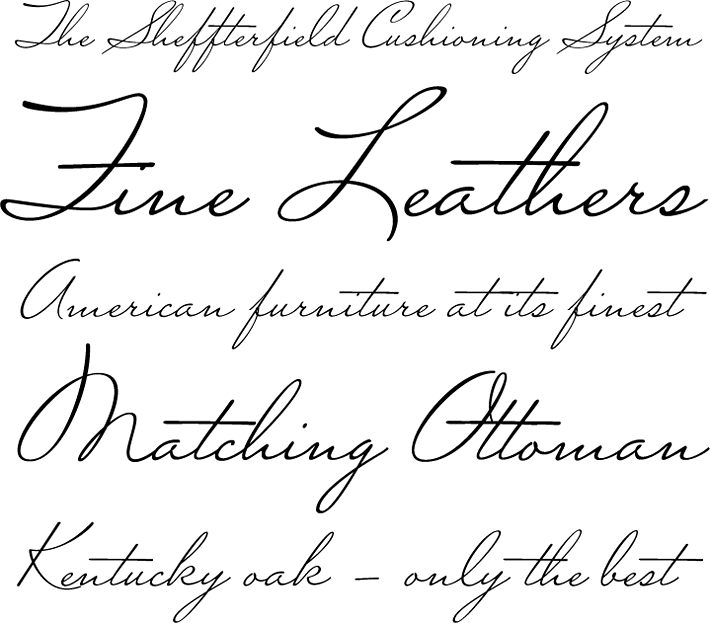 The Sheffterfield Cushioning System
Fine Leathers
American furniture at its finest
Matching Ottoman
Kentucky oak – only the best